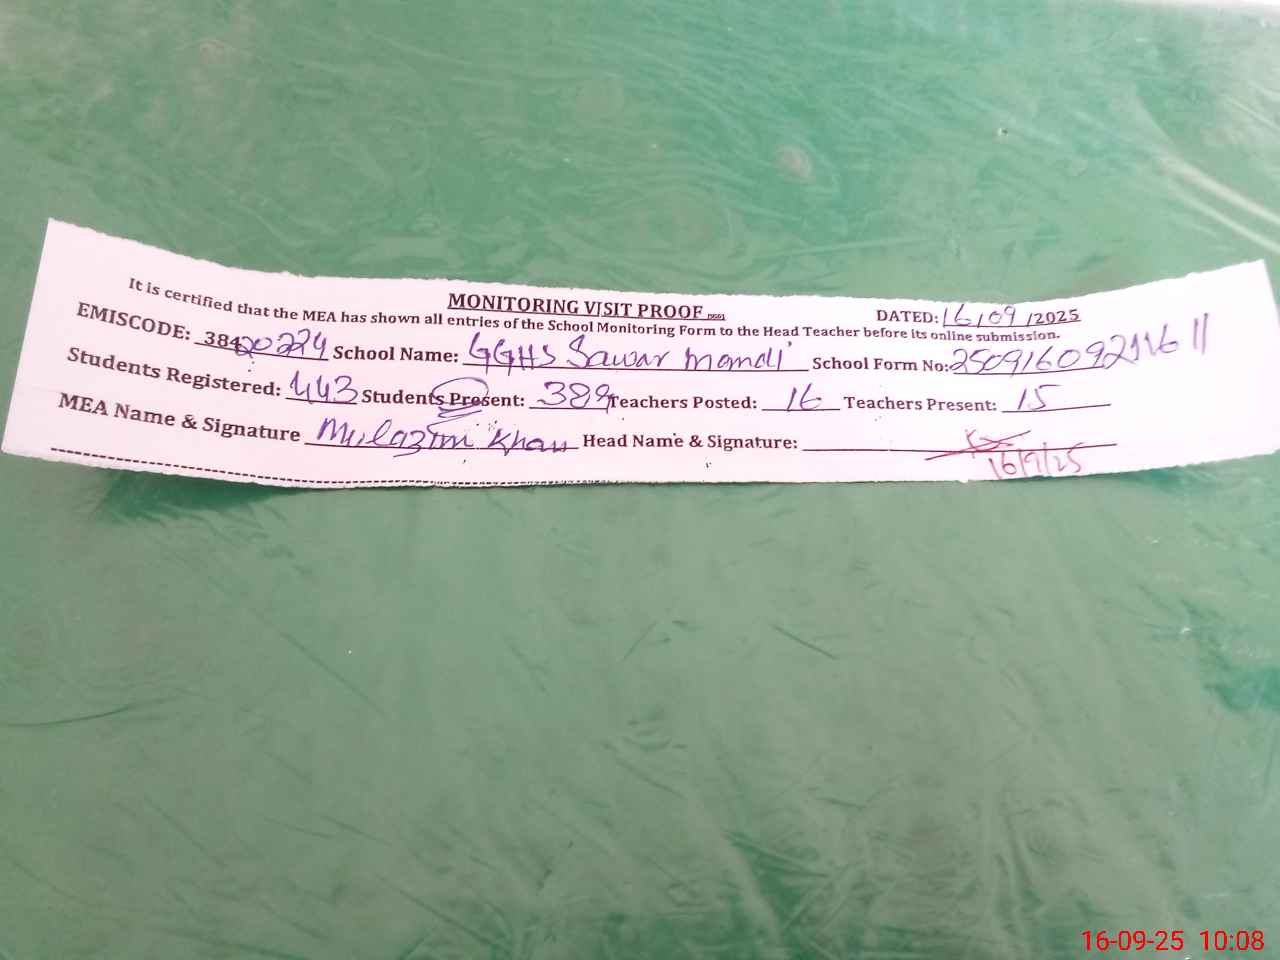 MONITORING VISIT PROOF
DATED: 16/09/2025
It is certified that the MEA has shown all entries of the School Monitoring Form to the Head Teacher before its online submission.
EMISCODE: 38420224 School Name: GGHS Sawar Mandi School Form No:
Students Registered: 443 Students Present: 389 Teachers Posted: 16 Teachers Present: 15
MEA Name & Signature Mulazim Khan Head Name & Signature:
16/9/25
16-09-25 10:08